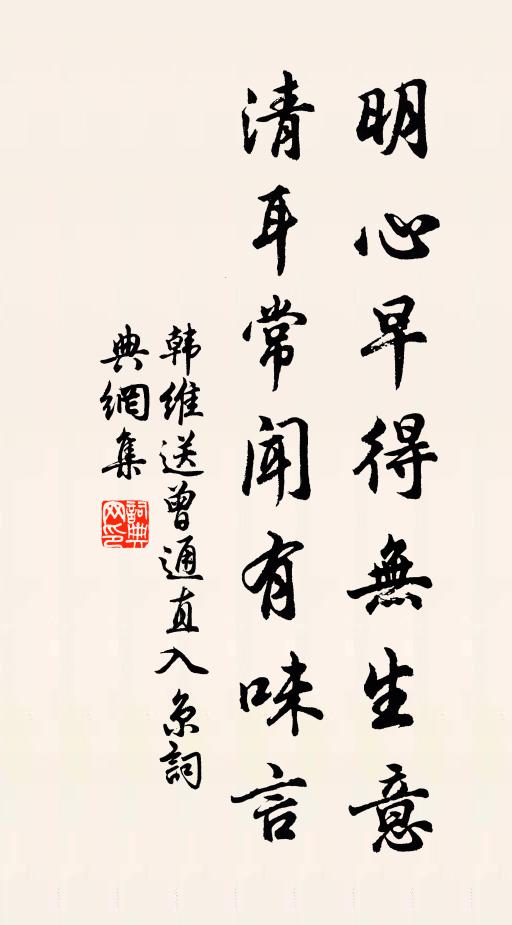 明心早得無生意
清耳常聞有味言
韩維送曾通直入京詞
典網集
詞典
网印